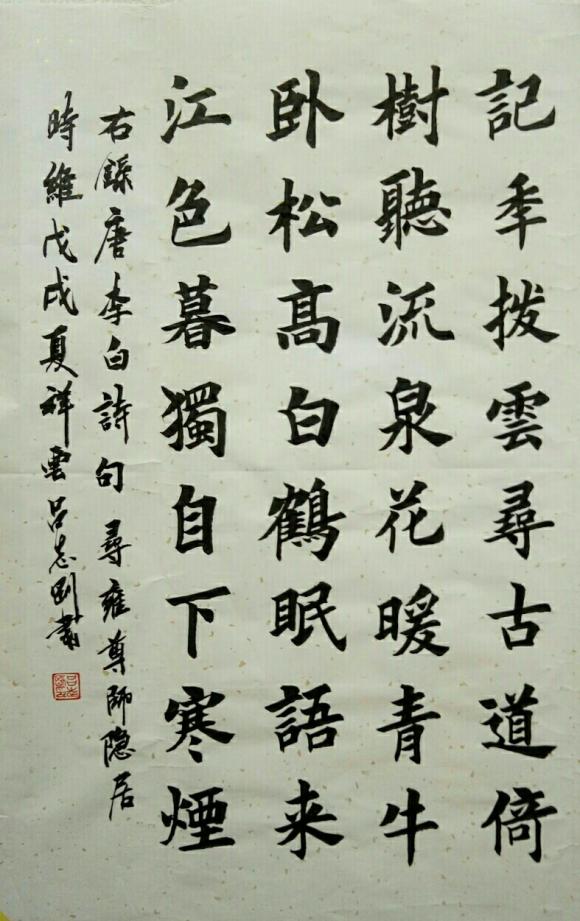 記秊拨雲尋古道倚
樹聽流泉花暖青牛
卧松髙白鶴眠語来
江色暮獨自下寒煙
右録唐李白詩句 尋雍尊師隐居
時維戊戌夏祥雲吕志剛書